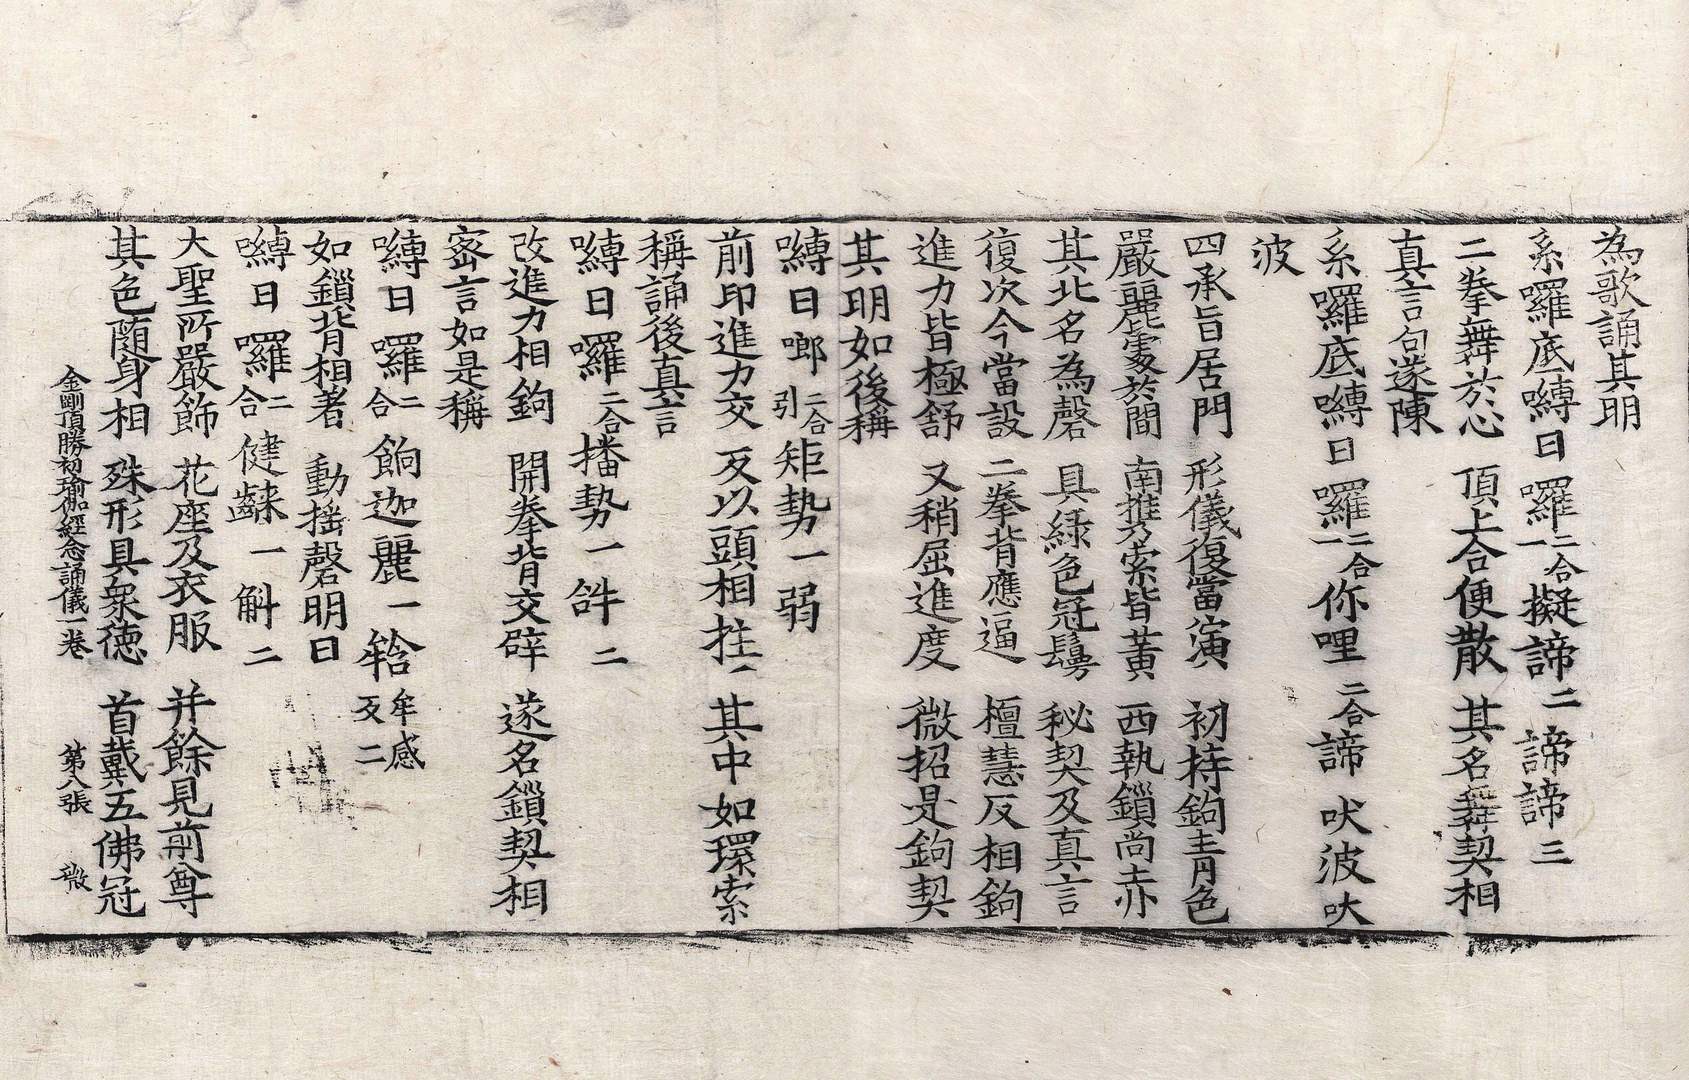 為歌誦其明
系囉底嚩日囉二合一擬諦二諦諦三
二拳舞於心 頂上合便散 其名舞契相
真言句遂陳
系囉底嚩日囉二合一你哩二合諦吠波吠
波
四承旨居門 形儀復當演 初持鉤青色
嚴麗處於間 南推乃索皆黃 西執鎖尚赤
其北名為磬 具綠色冠鬘 秘契及真言
復次今當設 二拳背應逼 檀慧反相鉤
進力皆極舒 又稍屈進度 微招是鉤契
其明如後稱
嚩日啷二合引矩勢一弱
前印進力交 叉以頭相拄 其中如環索
稱誦後真言
嚩日囉二合播勢一𤙖二
改進力相鉤 開拳背交辟 遂名鎖契相
密言如是稱
嚩日囉二合餉迦麗一𤚥牟感反二
如鎖背相著 動搖磬明曰
嚩日囉二合健𪘨一斛二
大聖所嚴飾 花座及衣服 并餘見前尊
其色隨身相 殊形具眾德 首戴五佛冠
金剛頂勝初瑜伽經念誦儀一卷 第八張 微